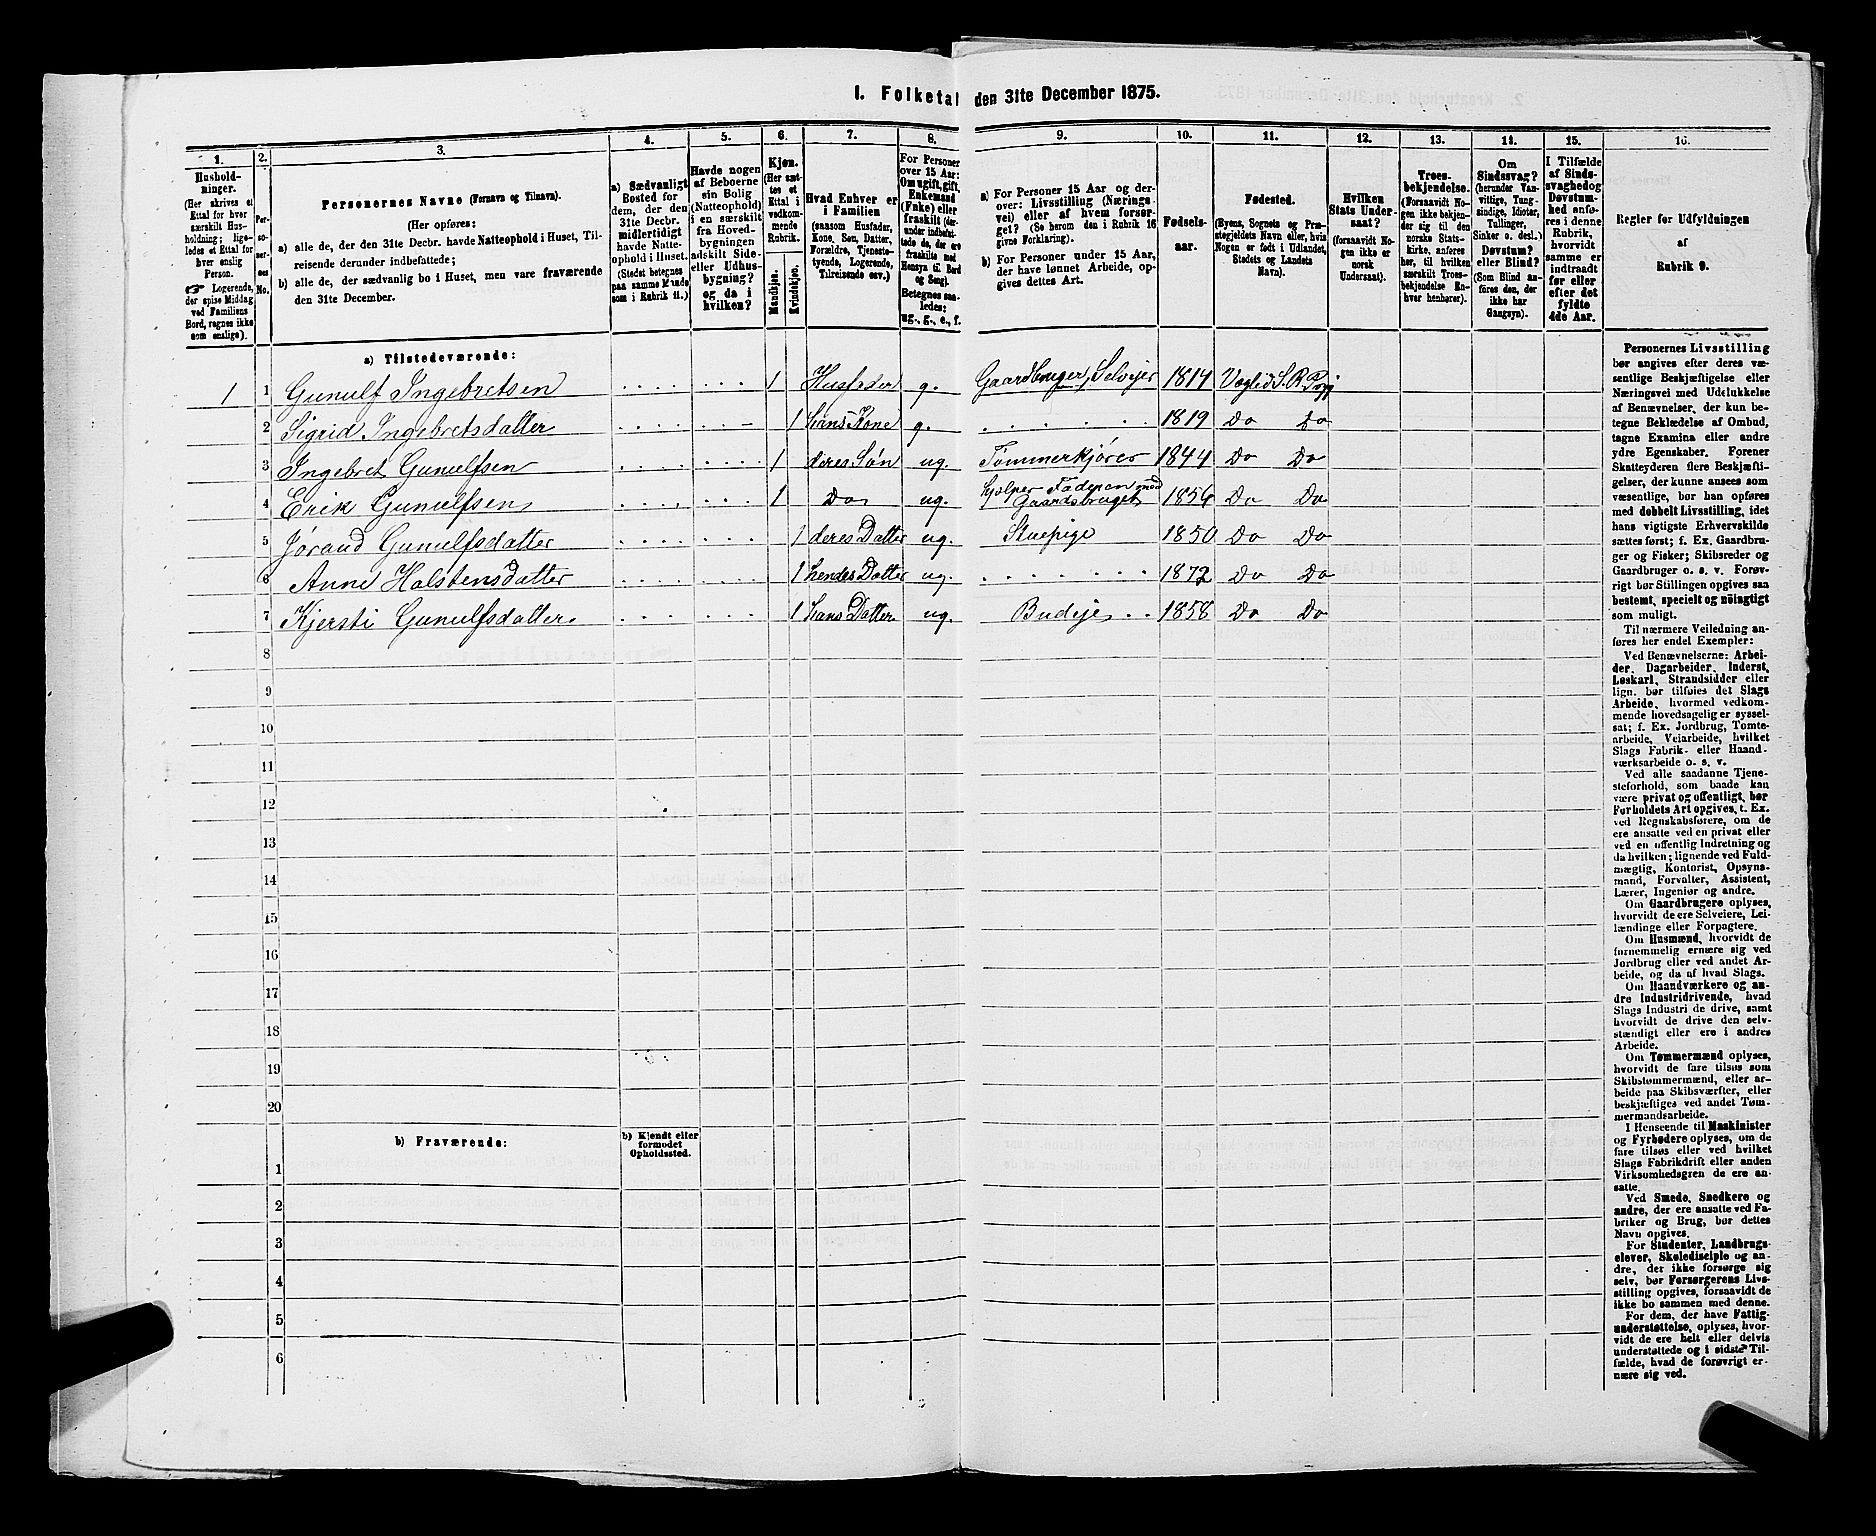 I. Folketal den 31te December 1875.
1.
Hushold-
ninger.
(Her skrives et
Ettal for hver
særskilt Hus-
holdning; lige-
ledes et Ettal for
hver enslig
Person.
☞ Logerende,
der spise Middag
ved Familiens
Bord, regnes ikke
som enslige).
2.
Per-
so-
ner-
nes
No.
3.
Personernes Navne (Fornavn og Tilnavn).
(Her opføres:
a) alle de, der den 31te Decbr. havde Natteophold i Huset, Til-
reisende derunder indbefattede;
b) alle de, der sædvanlig bo i Huset, men vare fraværende
den 31te December.
4.
a) Sædvanligt
Bosted for
dem, der den
31te Decbr.
midlertidigt
havde Natte-
ophold i Huset.
(Stedet betegnes
paa samme Maade
som i Rubrik 11.)
5.
Havde nogen
af Beboerne
sin Bolig
(Natteophold)
i en særskilt
fra Hoved-
bygningen
adskilt Side-
eller Udhus-
bygning?
og da i
hvilken?
6.
Kjøn.
(Her sæt-
tes et
Ettal i
vedkom-
mende
Rubrik.
Mandkjøn.
Kvindekjøn.
7.
Hvad Enhver er
i Familien
(saasom Husfader,
Kone, Søn, Datter,
Forældre, Tjeneste-
tyende, Logerende,
Tilreisende osv.)
8.
For Personer
over 15 Aar:
Om ugift, gift,
Enkemand
(Enke) eller
fraskilt (der-
under indbefat-
tede de, der ere
fraskilte med
Hensyn til Bord
og Seng).
Betegnes saa-
ledes:
ug., g., e., f.
9.
a) For Personer 15 Aar og der-
over: Livsstilling (Nærings-
vei) eller af hvem forsør-
get? (Se herom den i Rubrik 16
givne Forklaring).
b) For Personer under 15 Aar,
der have lønnet Arbeide, op-
gives dettes Art.
10.
Fødsels-
aar.
11.
Fødested.
(Byens, Sognets og Præ-
stegjeldets Navn eller, hvis
Nogen er født i Udlandet,
Stedets og Landets
Navn).
12.
Hvilken
Stats Under-
saat?
(forsaavidt No-
gen ikke er
norsk
Undersaat).
13.
Troes-
bekjendelse.
(Forsaavidt No-
gen ikke bekjen-
der sig til den
norske Stats-
kirke, anføres
her, til hvilken
særskilt Troes-
bekjendelse En-
hver henhører).
14.
Om
Sindssvag?
(herunder Van-
vittige, Tung-
sindige, Idioter,
Tullinger,
Sinker o. desl.)
Døvstum?
eller Blind?
(Som Blind an-
føres den, der
ikke har
Gangsyn).
15.
I Tilfælde
af Sinds-
svaghed og
Døvstum-
hed anfø-
res i denne
Rubrik,
hvorvidt
samme er
indtraadt
før eller
efter det
fyldte
4de Aar.
16.
Regler for Udfyldningen
af
Rubrik 9.
a) Tilstedeværende:
1 1 Gunulf Ingebretsen 1 Husfader g. Gaardbruger, Selvejer 1814
2 Sigrid Ingebretsdatter 1 hans Kone g. 1819 Do Do
3 Ingebret Gunulfsen 1 deres Søn ug. Tømmerkjører 1844 Do Do
4 Erik Gunulfsen 1 Do ug. hjælper Faderen med Gaardsbruget 1856 Do Do
5 Jørand Gunulfsdatter 1 deres Datter ug. Stuepige 1850 Do Do
6 Anne Halstensdatter 1 hendes Datter ug. 1872 Do Do
7 Kjersti Gunulfsdatter 1 hans Datter ug. Budeje 1858 Do Do
8
9
10
11
12
13
14
15
16
17
18
19
20
b) Fraværende:
b) Kjendt eller
formodet
Opholdssted.
1
2
3
4
5
6
Personernes Livsstilling
bør angives efter deres væ-
sentlige Beskjæftigelse eller
Næringsvei med Udelukkelse
af Benævnelser, der kun be-
tegne Beklædelse af Ombud,
tagne Examina eller andre
ydre Egenskaber. Forener
Skatteyderen flere Beskjæfti-
gelser, der kunne ansees som
væsentlige, bør han opføres
med dobbelt Livsstilling, idet
hans vigtigste Erhvervskilde
sættes først; f. Ex. Gaardbru-
ger og Fisker; Skibsreder og
Gaardbruger o. s. v. Forøv-
rigt bør Stillingen opgives saa
bestemt, specielt og nøiagtigt
som muligt.
Til nærmere Veiledning an-
føres her endel Exempler:
Ved Benævnelserne: Arbei-
der, Dagarbeider, Inderst,
Løskarl, Strandsidder eller
lign. bør tilføies det Slags
Arbeide, hvormed vedkom-
mende hovedsagelig er syssel-
sat; f. Ex. Jordbrug, Tomte-
arbeide, Veiarbeide, hvilket
Slags Fabrik- eller Haand-
værksarbeide o. s. v.
Ved alle saadanne Tjene-
steforhold, som baade kan
være privat og offentligt, bør
Forholdets Art opgives, t. Ex.
ved Regnskabsførere, om de
ere ansatte ved en privat eller
ved en offentlig Indretning og
da hvilken; lignende ved Fuld-
mægtig, Kontorist, Opsyns-
mand, Forvalter, Assistent,
Lærer, Ingeniør og andre.
Om Gaardbrugere oplyses,
hvorvidt de ere Selveiere, Lei-
lændinge eller Forpagtere.
Om Husmænd, hvorvidt de
fornemmelig ernære sig ved
Jordbrug eller ved andet Ar-
beide, og da af hvad Slags.
Om Haandværkere og an-
dre Industridrivende, hvad
Slags Industri de drive, samt
hvorvidt de drive den selv-
stændigt eller ere i andres
Arbeide.
Om Tømmermænd oplyses,
hvorvidt de fare tilsøs som
Skibstømmermænd, eller ar-
beide paa Skibsværfter, eller
beskjæftiges ved andet Tøm-
mermandsarbeide.
I Henseende til Maskinister
og Fyrbødere oplyses, om de
fare tilsøs eller ved hvilket
Slags Fabrikdrift eller anden
Virksomhedsgren de ere an-
satte.
Ved Smede, Snedkere og
andre, der ere ansatte ved Fa-
briker og Brug, bør dettes
Navn opgives.
For Studenter, Landbrugs-
elever, Skoledisciple og an-
dre, der ikke forsørge sig
selv, bør Forsørgerens Livs-
stilling opgives, forsaavidt de
ikke bo sammen med denne.
For dem, der have Fattig-
understøttelse, oplyses, hvor-
vidt de ere helt eller delvis
understøttede og i sidste Til-
fælde, hvad de forøvrigt er-
nære sig ved.